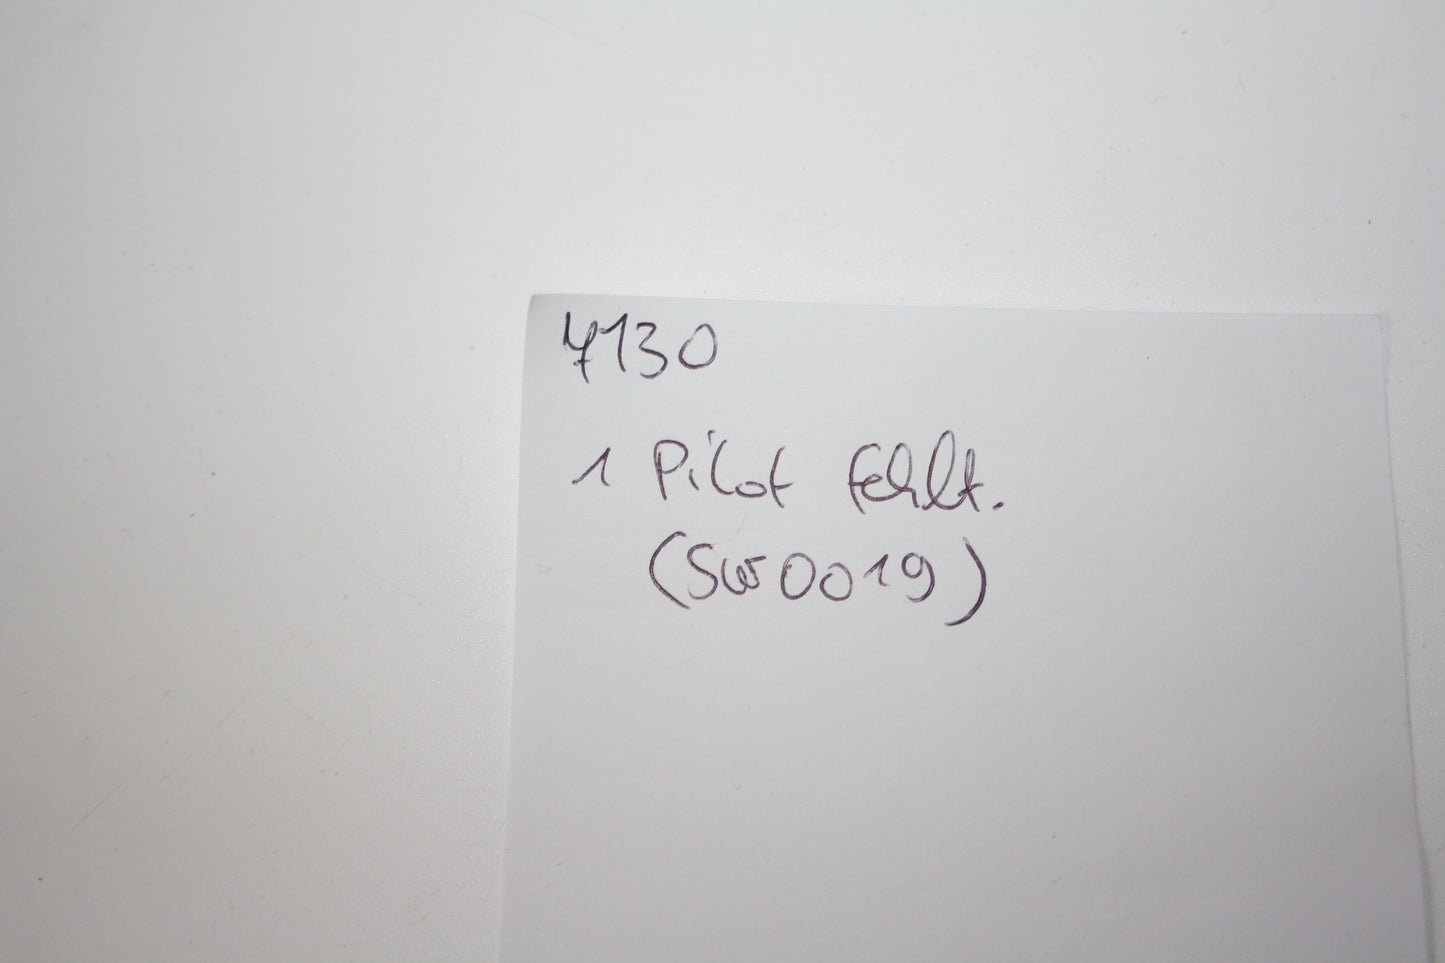 7130
1 Pilot fehlt.
(SW0019)